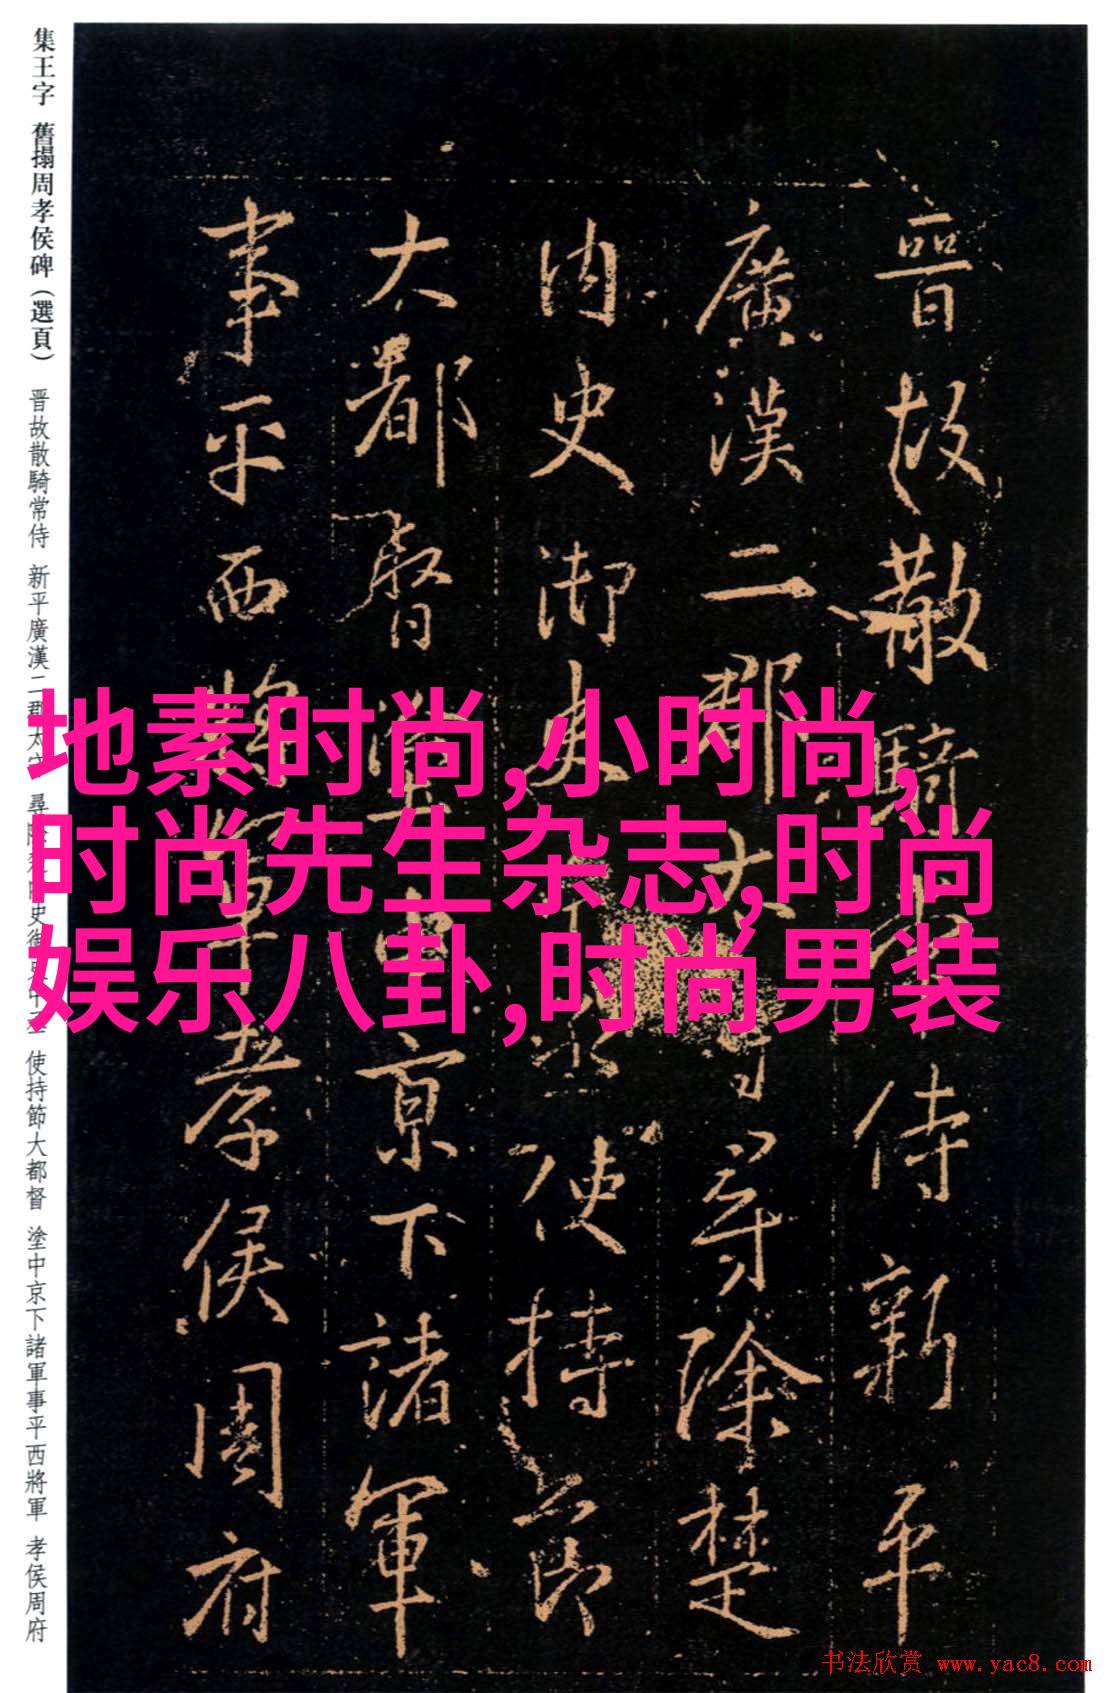 集王字 舊搨周孝侯碑（選頁） 晋故散騎常侍 新平廣漢二郡太 尋除楚 史御 中 使持節大都督 塗中京下諸軍事平西將軍 孝侯周府
晉故散騎 侍新平
廣漢二郡太 尋除楚
内史御史中丞使持節
大都督塗中京下諸軍
事平西將軍孝侯周府
地素时尚,小时尚,
时尚先生杂志,时尚
娱乐八卦,时尚男装
书法欣赏 www.yac8.com